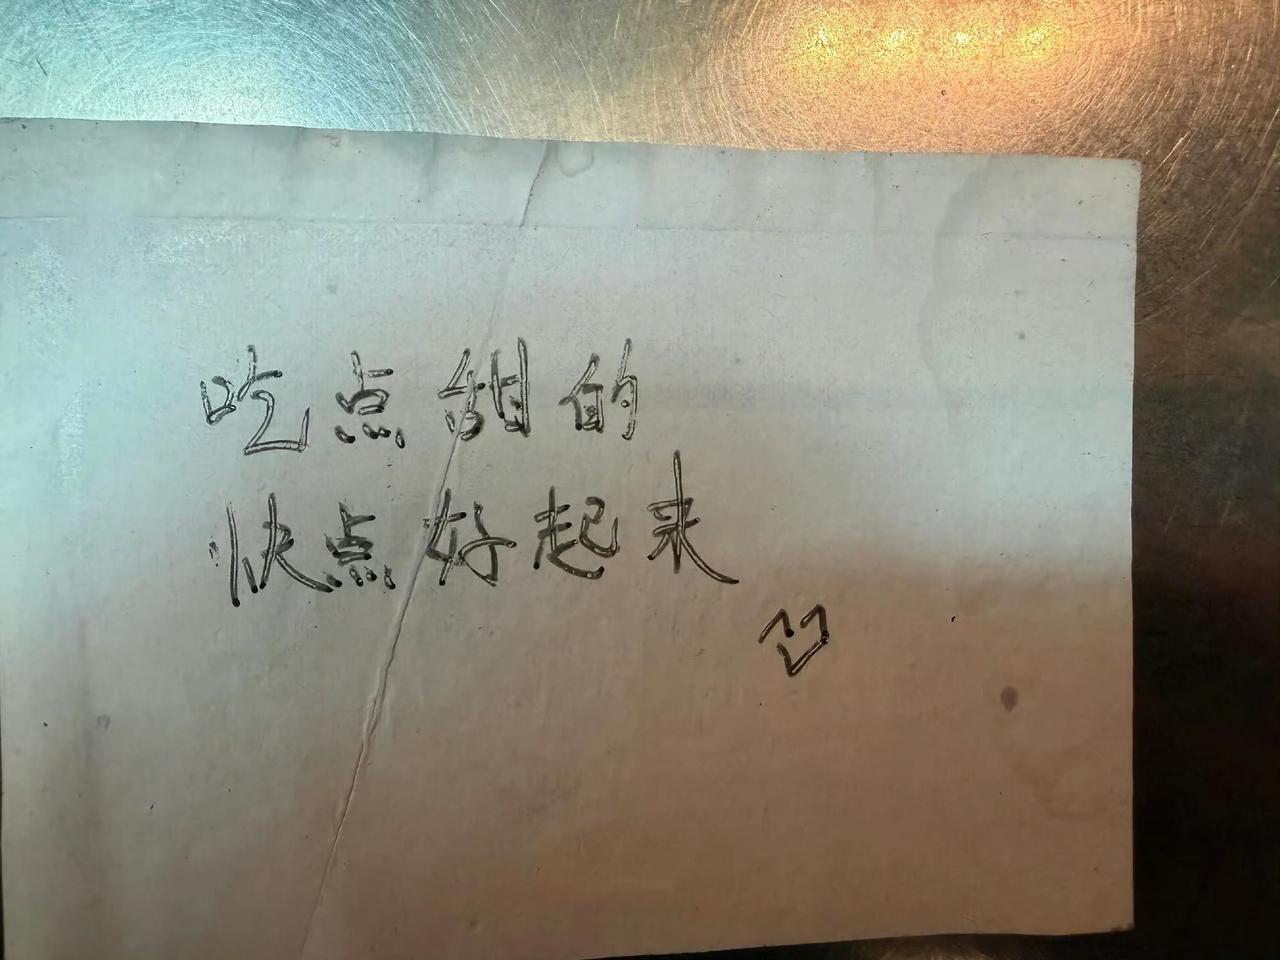 吃点甜的
快点好起来